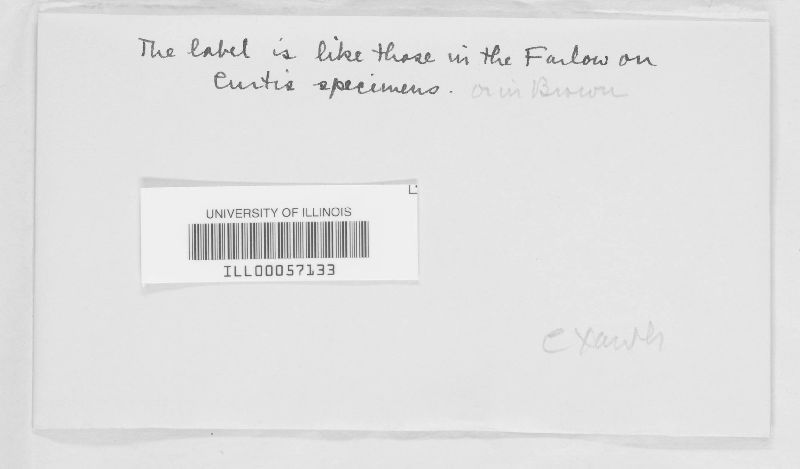 The label is like those in the Farlow on
Curtis specimens. or in Brown
UNIVERSITY OF ILLINOIS
ILL00057133
C Xanth